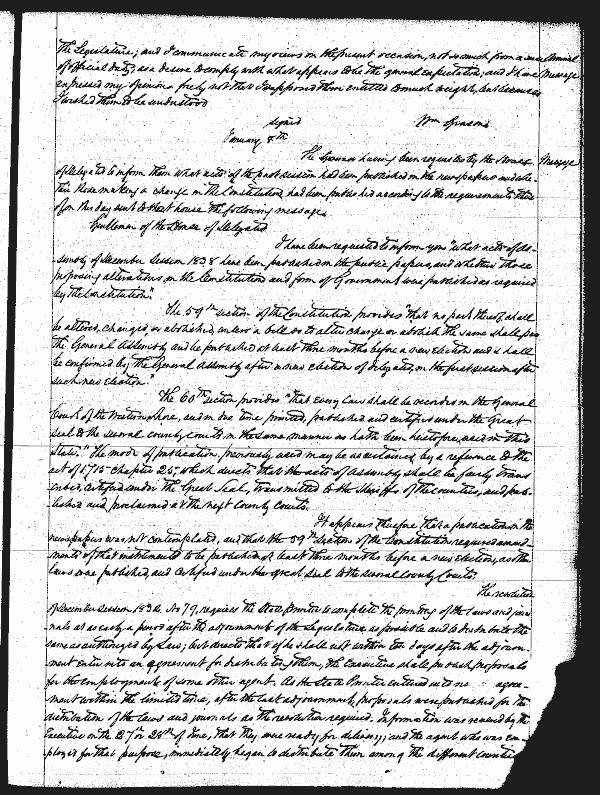 the Legislature; and I communicate my views on the present occasion, not so much from a sense Annual
of official duty, as a desire to comply with what appears to be the general expectation; and I have Message
expressed my opinions freely not that I supposed them entitled to much weight, but because
I wished them to be understood
signed Wm Grason
January 8th
The Governor having been requested by the House Message
of Delegates to inform them what acts of the past session had been published in the newspapers and whe-
ther those making a change in the Constitution, had been published according to the requirements there
of, on this day sent to that house the following message,
Gentlemen of the House of Delegates
I have been requested to inform you "what acts of As-
sembly of December Session 1838 have been published in the public papers, and whether those
proposing alterations in the Constitution and form of Government were published as required
by the Constitution."
The 59th section of the Constitution provides "that no part thereof shall
be altered, changed, or abolished, unless a bill so to alter change or abolish the same shall pass
the General Assembly and be published at least three months before a new election and shall
be confirmed by the General Assembly after a new election of delegates, in the first session after
such new election."
The 60th section provides "that every Law shall be recorded in the General
Court of the Western shore, and in due time printed, published and certified under the Great
Seal to the several county Courts in the same manner as hath been heretofore used in this
State." The mode of publication, previously used may be ascertained by a reference to the
act of 1715 Chapter 25, which directs that the acts of assembly shall be fairly trans
cribed, certified under the Great Seal, transmitted to the Sheriffs of the counties, and pub-
lished and proclaimed at the next County Courts.
It appears therefore that a publication in the
newspapers was not contemplated, and that the 59th section of the Constitution requires amend-
ments of that instrument to be published at least three months before a new election, as other
laws were published, and certified under the great seal to the several County Courts.
The resolution
of December session 1836, No 79, requires the State Printer to complete the printing of the laws and jour-
nals at as early a period after the adjournment of the Legislature as possible and to distribute the
same as authorized by Law; but directs that if he shall not within ten days after the adjourn-
ment enter into an agreement for distributing them, the Executive shall publish proposals
for the employment of some other agent. As the State Printer entered into no agree-
ment within the limited time, after the last adjournment, proposals were published for the
distribution of the laws and journals as the resolution required. Information was received by the
Executive on the 27th or 28th of June, that they were ready for delivery; and the agent who was em-
ployed for that purpose, immediately began to distribute them among the different counties